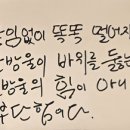 끊임없이 똑똑 떨어지
방울이 바위를 뚫는
방울의 힘이 아니
부단함이다.